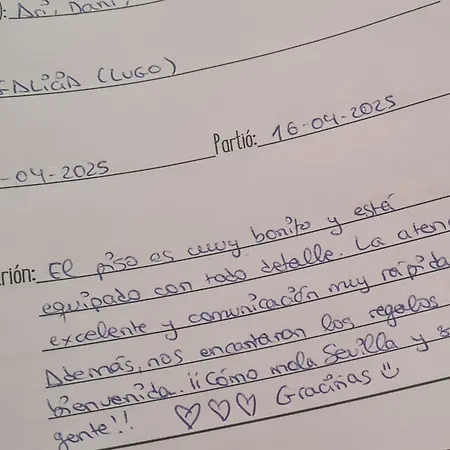 ): Ari, Dani,
GALICIA (LUGO)
-04-2025 Partió: 16-04-2025
rión: El piso es muy bonito y está
equipado con todo detalle. La aten
excelente y comunicación muy rápida
Además, nos encantaron los regalos
bienvenida. ¡¡Cómo mola Sevilla y s
gente!! ♡♡♡ Graciñas ☺